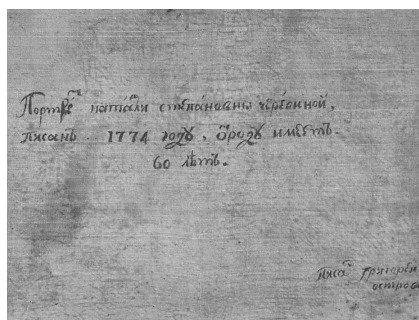 Портре͞т натали степановны черевинной,
писанъ ... 1774 году, ѿроду имеетъ
60 лѣтъ.
писа᷃ григореи
остров